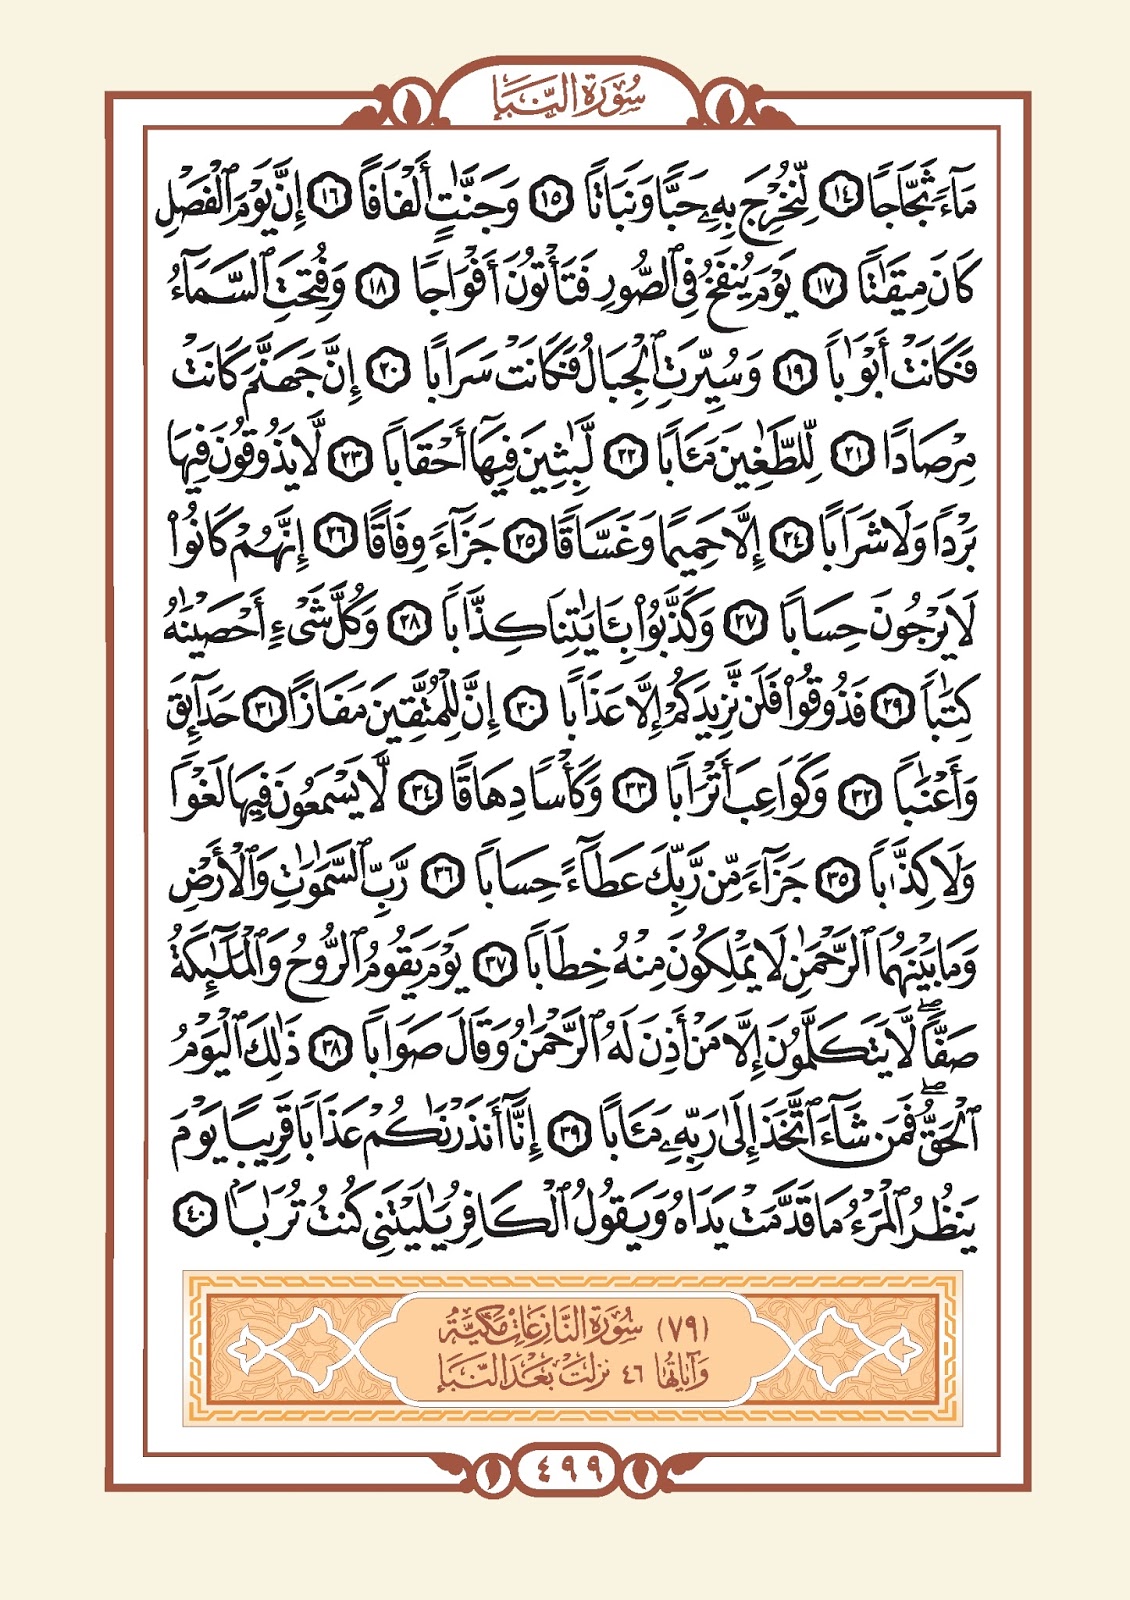 سُورَةُ النَّبَإِ
مَآءً ثَجَّاجًا ١٤ لِّنُخْرِجَ بِهِۦ حَبًّا وَنَبَاتًا ١٥ وَجَنَّٰتٍ أَلْفَافًا ١٦ إِنَّ يَوْمَ ٱلْفَصْلِ
كَانَ مِيقَٰتًا ١٧ يَوْمَ يُنفَخُ فِى ٱلصُّورِ فَتَأْتُونَ أَفْوَاجًا ١٨ وَفُتِحَتِ ٱلسَّمَآءُ
فَكَانَتْ أَبْوَٰبًا ١٩ وَسُيِّرَتِ ٱلْجِبَالُ فَكَانَتْ سَرَابًا ٢٠ إِنَّ جَهَنَّمَ كَانَتْ
مِرْصَادًا ٢١ لِّلطَّٰغِينَ مَـَٔابًا ٢٢ لَّٰبِثِينَ فِيهَآ أَحْقَابًا ٢٣ لَّا يَذُوقُونَ فِيهَا
بَرْدًا وَلَا شَرَابًا ٢٤ إِلَّا حَمِيمًا وَغَسَّاقًا ٢٥ جَزَآءً وِفَاقًا ٢٦ إِنَّهُمْ كَانُوا۟
لَا يَرْجُونَ حِسَابًا ٢٧ وَكَذَّبُوا۟ بِـَٔايَٰتِنَا كِذَّابًا ٢٨ وَكُلَّ شَىْءٍ أَحْصَيْنَٰهُ
كِتَٰبًا ٢٩ فَذُوقُوا۟ فَلَن نَّزِيدَكُمْ إِلَّا عَذَابًا ٣٠ إِنَّ لِلْمُتَّقِينَ مَفَازًا ٣١ حَدَآئِقَ
وَأَعْنَٰبًا ٣٢ وَكَوَاعِبَ أَتْرَابًا ٣٣ وَكَأْسًا دِهَاقًا ٣٤ لَّا يَسْمَعُونَ فِيهَا لَغْوًا
وَلَا كِذَّٰبًا ٣٥ جَزَآءً مِّن رَّبِّكَ عَطَآءً حِسَابًا ٣٦ رَّبِّ ٱلسَّمَٰوَٰتِ وَٱلْأَرْضِ
وَمَا بَيْنَهُمَا ٱلرَّحْمَٰنِ لَا يَمْلِكُونَ مِنْهُ خِطَابًا ٣٧ يَوْمَ يَقُومُ ٱلرُّوحُ وَٱلْمَلَٰٓئِكَةُ
صَفًّاۖ لَّا يَتَكَلَّمُونَ إِلَّا مَنْ أَذِنَ لَهُ ٱلرَّحْمَٰنُ وَقَالَ صَوَابًا ٣٨ ذَٰلِكَ ٱلْيَوْمُ
ٱلْحَقُّۖ فَمَن شَآءَ ٱتَّخَذَ إِلَىٰ رَبِّهِۦ مَـَٔابًا ٣٩ إِنَّآ أَنذَرْنَٰكُمْ عَذَابًا قَرِيبًا يَوْمَ
يَنظُرُ ٱلْمَرْءُ مَا قَدَّمَتْ يَدَاهُ وَيَقُولُ ٱلْكَافِرُ يَٰلَيْتَنِى كُنتُ تُرَٰبًۢا ٤٠
(٧٩) سُورَةُ النَّازِعَاتِ مَكِّيَّةٌ
وَآيَاتُهَا ٤٦ نَزَلَتْ بَعْدَ النَّبَإِ
٤٩٩